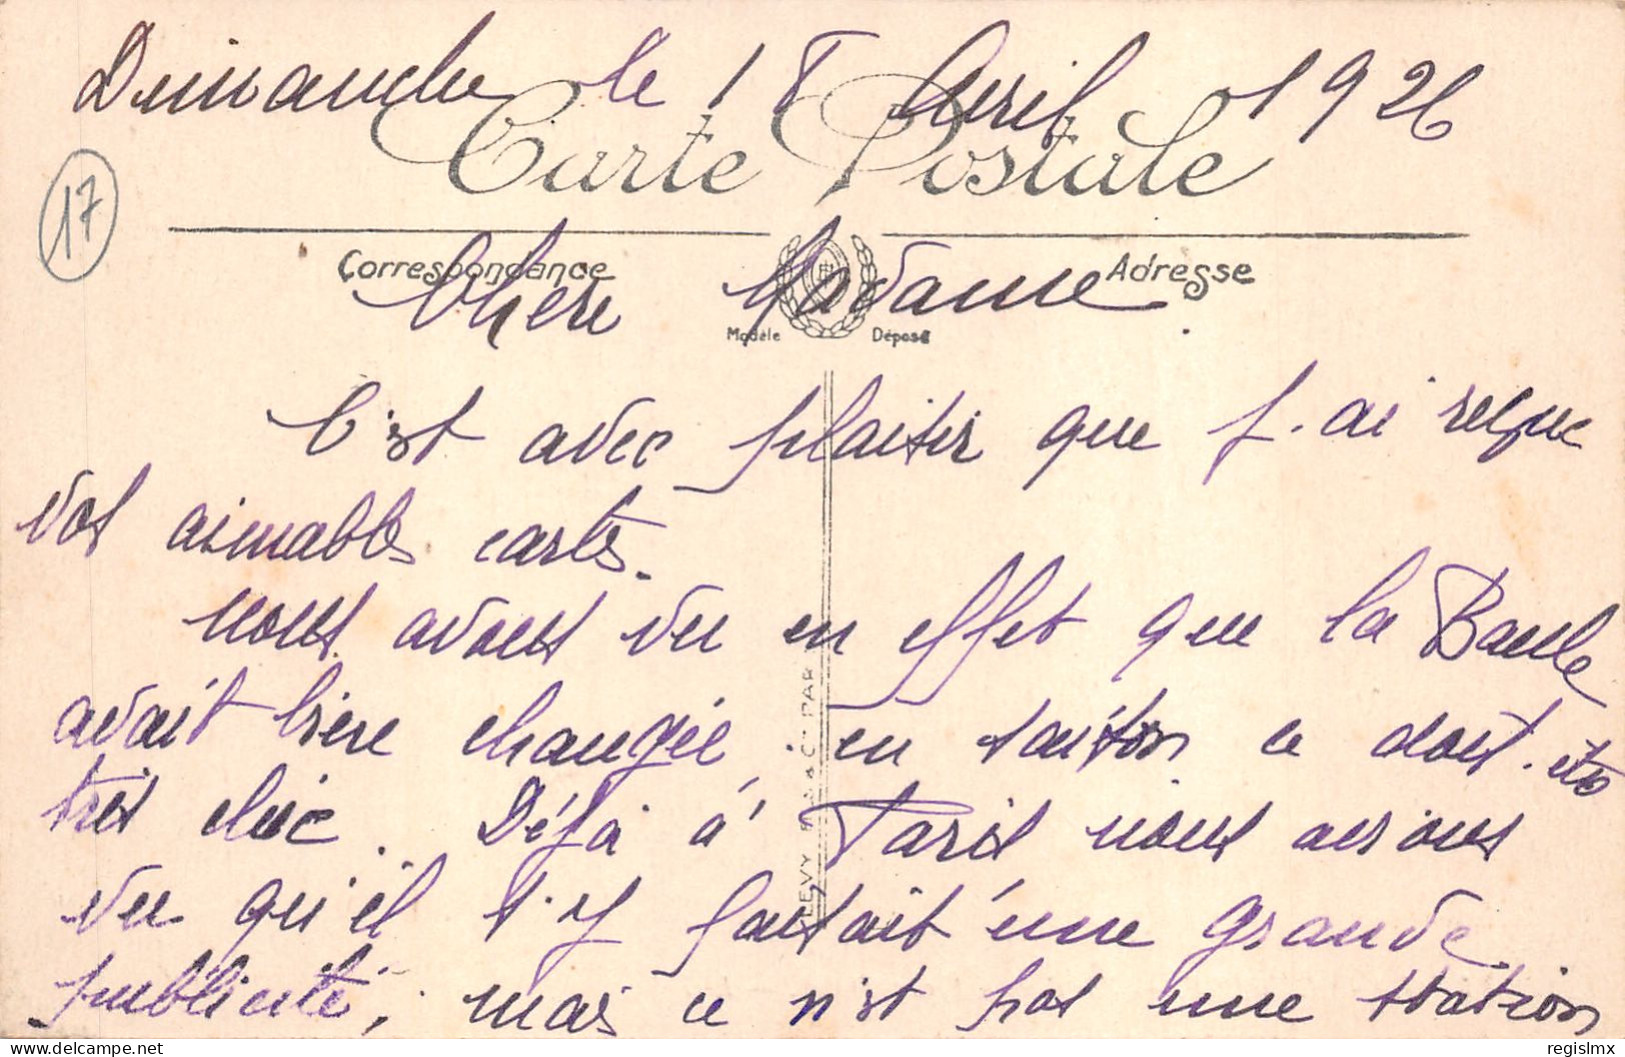 Dimanche le 18 Avril 1926
Carte Postale
17
Correspondance
Adresse
Chère Madame
Modèle Déposé
C'est avec plaisir que j'ai reçue
vos aimables cartes.
nous avons vu en effet que la Baule
avait bien changée, en saison ce doit. être
très chic. Déjà à Paris nous avions
vu qu'il s'y faisait une grande
publicité, mais ce n'est pas une station
LEVY & C PAR
delcampe.net
regislmx